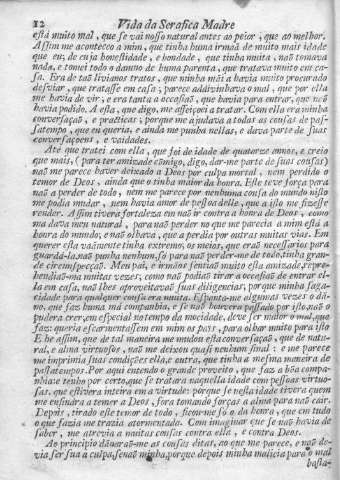 12 Vida da Serafica Madre
está muito mal, que se vai nosso natural antes ao peior, que ao melhor.
Assim me aconteceo a mim, que tinha huma irmaã de muito mais idade
que eu; de cuja honestidade, e bondade, que tinha muita, naõ tomava
nada, e tomei todo o damno de huma parenta, que tratava muito em ca-
sa. Era de taõ livianos tratos, que minha mãi a havia muito procurado
desviar, que tratasse em casa; parece adivinhava o mal, que por ella
me havia de vir; e era tanta a occasiaõ, que havia para entrar, que naõ
havia podido. A esta, que digo, me affeiçoei a tratar. Com ella era minha
conversaçaõ, e practicas; porque me ajudava a todas as cousas de pas-
satempo, que eu queria, e ainda me punha nellas, e dava parte de suas
conversaçoens, e vaidades.
Até que tratei com ella, que foi de idade de quatorze annos, e creio
que mais, (para ter amizade cõmigo, digo, dar-me parte de suas cousas)
naõ me parece haver deixado a Deos por culpa mortal, nem perdido o
temor de Deos, ainda que o tinha maior da honra. Este teve força para
naõ a perder de todo, nem me parece por nenhuma cousa do mundo nisto
me podia mudar, nem havia amor de pessoa delle, que a isto me fizesse
render. Assim tivera fortaleza em naõ ir contra a honra de Deos, como
ma dava meu natural, para naõ perder no que me parecia a mim está a
honra do mundo; e naõ olhava, que a perdia por outras muitas vias. Em
querer esta vaãmente tinha extremo, os meios, que eraõ necessarios para
guarda-la, naõ punha nenhum, só para naõ perder-me de todo, tinha gran-
de circumspecçaõ. Meu pai, e irmãos sentiaõ muito esta amizade, repre-
hendiaõ-ma muitas vezes; como naõ podiaõ tirar a occasiaõ de entrar el-
la em casa, naõ lhes aproveitavaõ suas diligencias; porque minha saga-
cidade para qualquer cousa era muita. Espanto-me algumas vezes o da-
no, que faz huma má companhia, e se naõ houvera passado por isto, naõ o
pudera crer, em especial no tempo da mocidade, deve ser maior o mal, que
faz: queria escarmentassem em mim os pais, para olhar muito para isto
E he assim, que de tal maneira me mudou esta conversaçaõ, que de natu-
ral, e alma virtuosos, naõ me deixou quasi nenhum sinal: e me parece
me imprimia suas condições ella, e outra, que tinha a mesma maneira de
passatempos. Por aqui entendo o grande proveito, que faz a boa compa-
nhia: e tenho por certo, que se tratara naquella idade com pessoas virtuo-
sas, que estivera inteira em a virtude: porque se nesta idade tivera quem
me ensinara a temer a Deos, fora tomando forças a alma para naõ cair.
Depois, tirado este temor de todo, ficou-me só o da honra, que em tudo
o que fazia me trazia atormentada. Com imaginar que se naõ havia de
saber, me atrevia a muitas cousas contra ella, e contra Deos.
Ao principio dãnaraõ-me as cousas ditas, ao que me parece, e naõ de-
via ser sua a culpa, senaõ minha, porque depois minha malicia para o mal
basta-